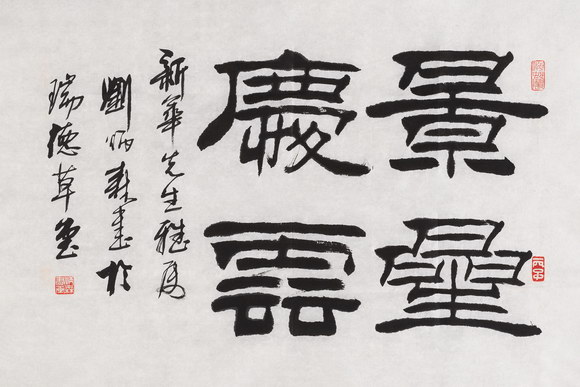 景星
慶雲
新華先生雅属
劉炳森書於
瑞德草堂